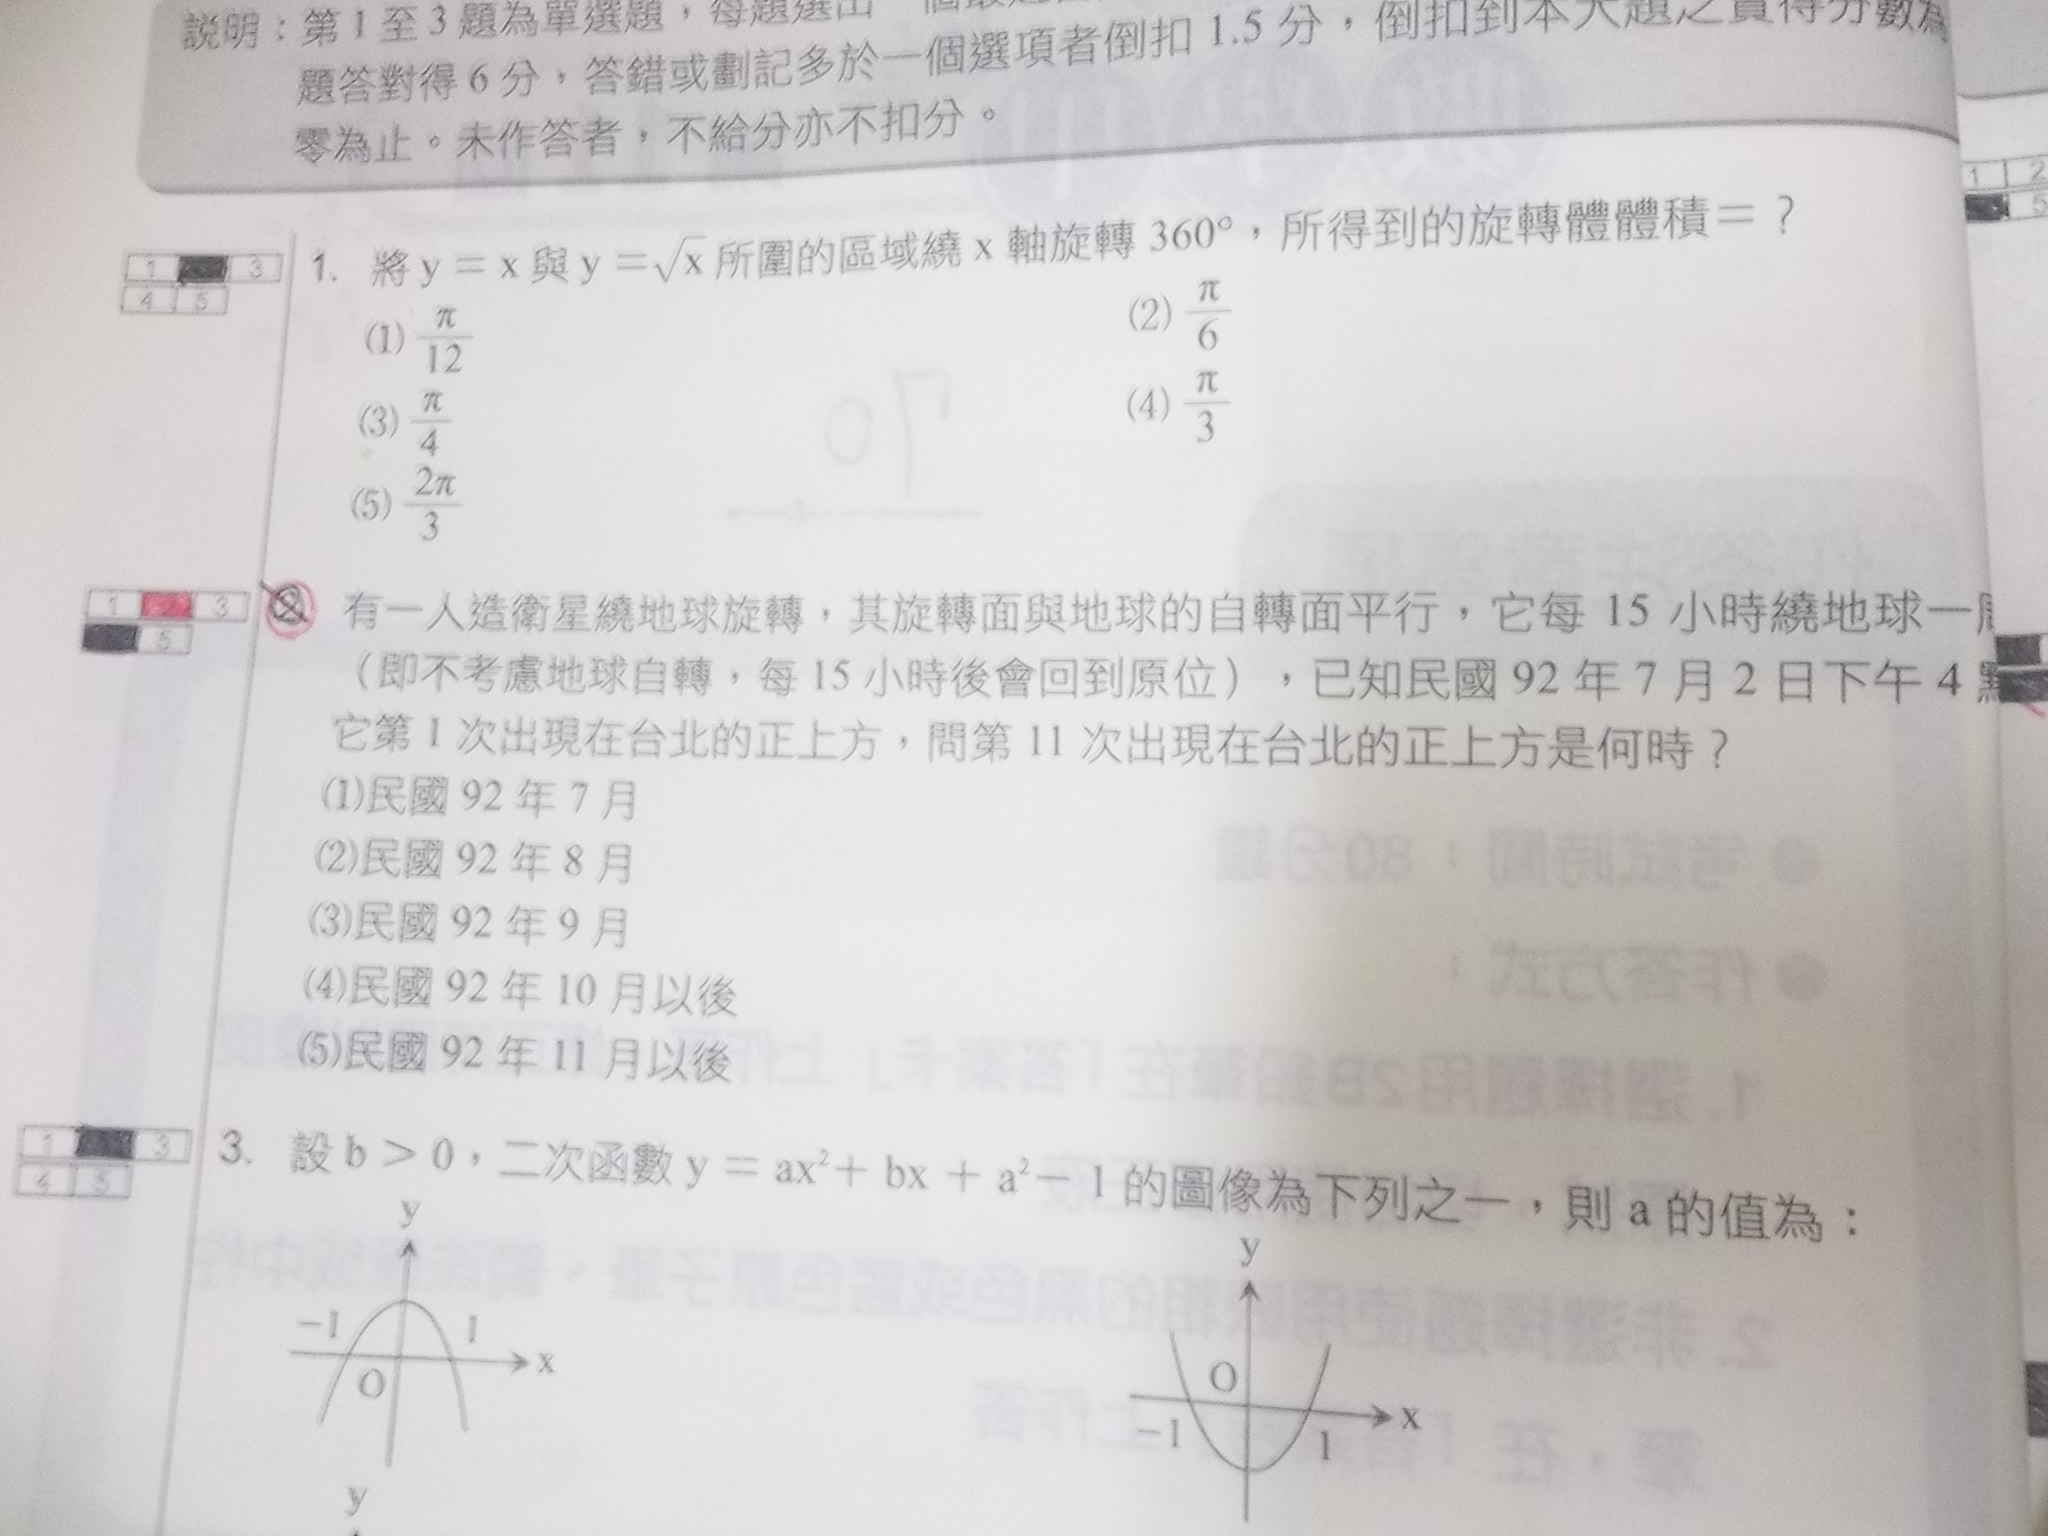 說明：第 1 至 3 題為單選題，每題選出一個最
題答對得 6 分，答錯或劃記多於一個選項者倒扣 1.5 分，倒扣到本大題之實得分數為
零為止。未作答者，不給分亦不扣分。
1 3
4 5
1. 將 y = x 與 y = √x 所圍的區域繞 x 軸旋轉 360°，所得到的旋轉體體積 = ？
(1) π/12
(2) π/6
(3) π/4
(4) π/3
(5) 2π/3
1 2 3
5
2 有一人造衛星繞地球旋轉，其旋轉面與地球的自轉面平行，它每 15 小時繞地球一
（即不考慮地球自轉，每 15 小時後會回到原位），已知民國 92 年 7 月 2 日下午 4 點
它第 1 次出現在台北的正上方，問第 11 次出現在台北的正上方是何時？
(1)民國 92 年 7 月
(2)民國 92 年 8 月
(3)民國 92 年 9 月
(4)民國 92 年 10 月以後
(5)民國 92 年 11 月以後
1 3
4 5
3. 設 b > 0，二次函數 y = ax² + bx + a² − 1 的圖像為下列之一，則 a 的值為：
y
−1 1
O x
y
O x
−1 1
y
1 2
5